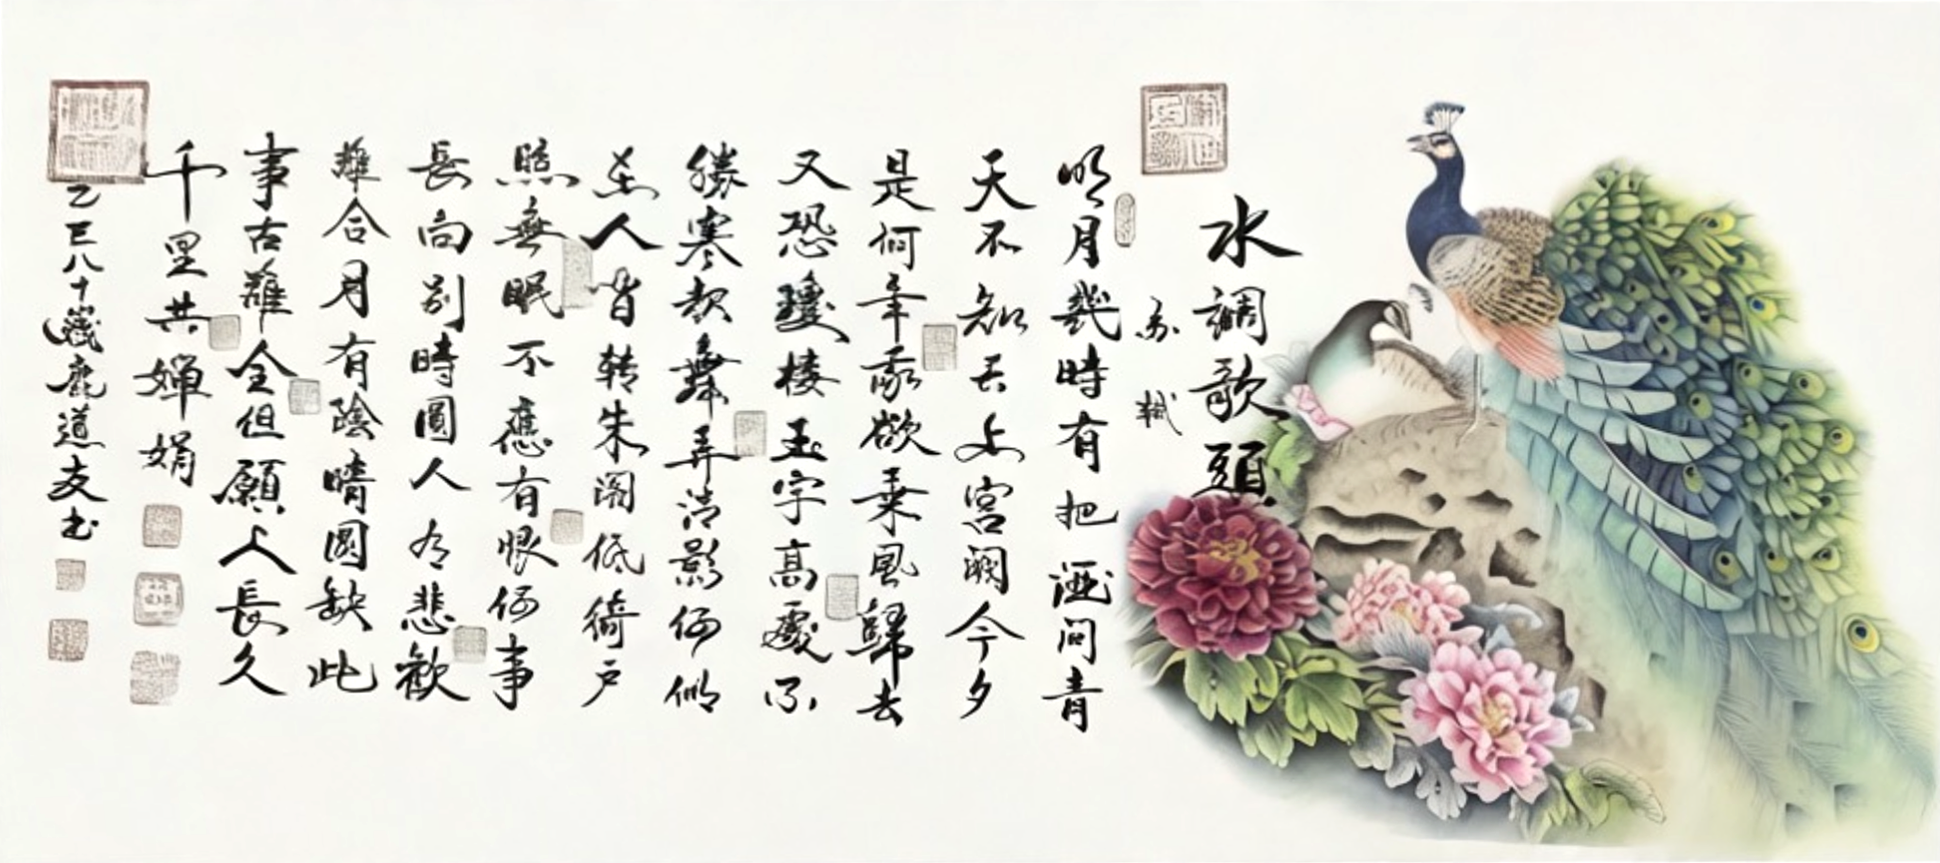 水調歌頭
苏軾
明月幾時有把酒問青
天不知天上宮闕今夕
是何年我欲乘風歸去
又恐瓊楼玉宇高處不
勝寒起舞弄清影何似
在人皆转朱阁低绮户
照無眠不應有恨何事
長向别時圓人有悲歡
離合月有陰晴圓缺此
事古難全但願人長久
千里共嬋娟
乙巳八十歲鹿道友书